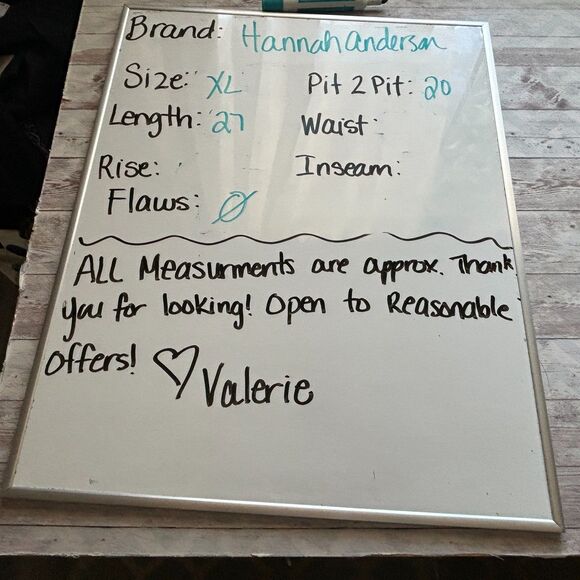 Brand: Hannah anderson
Size: XL Pit 2 Pit: 20
Length: 27 Waist:
Rise: Inseam:
Flaws: Ø
ALL Measurments are approx. Thank
you for looking! Open to Reasonable
offers! ♡ Valerie